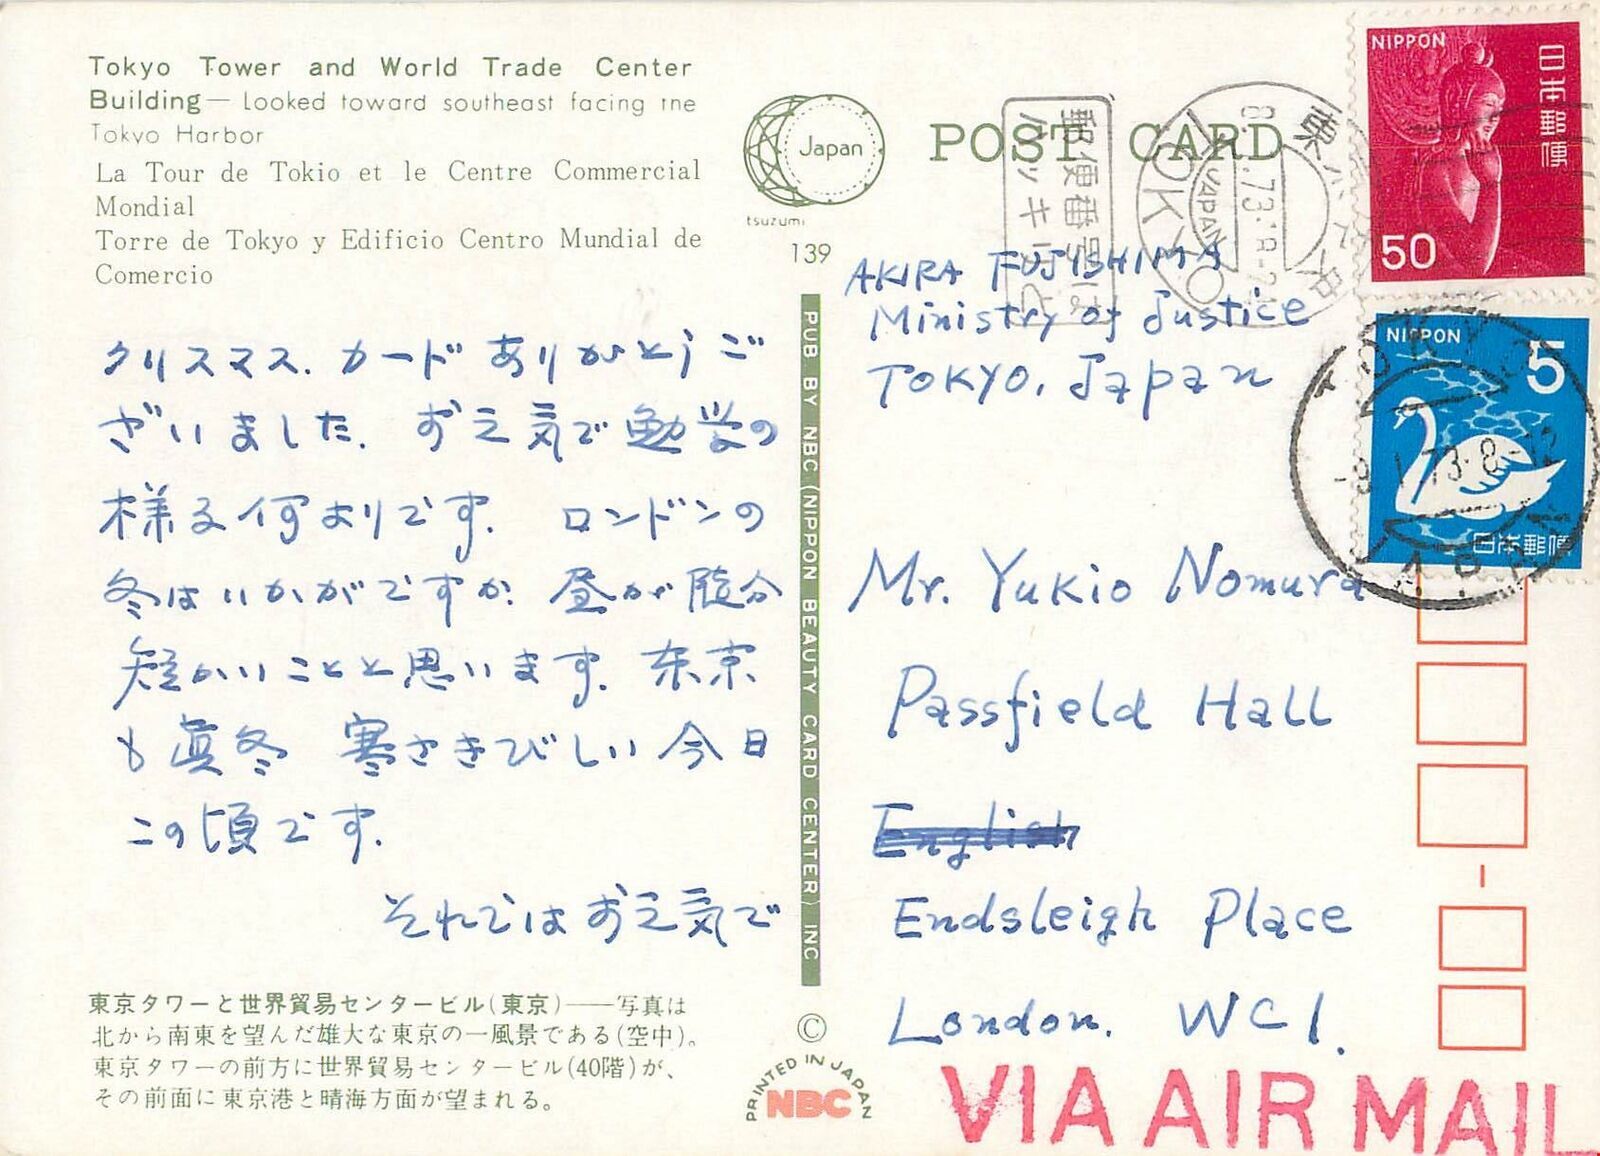 Tokyo Tower and World Trade Center
Building— Looked toward southeast facing the
Tokyo Harbor
La Tour de Tokio et le Centre Commercial
Mondial
Torre de Tokyo y Edificio Centro Mundial de
Comercio
クリスマス.カード ありがとうご
ざいました. お元気で勉学の
様子何よりです. ロンドンの
冬はいかがですか. 昼が随分
短かいことと思います. 東京
も真冬 寒さきびしい今日
この頃です.
それではお元気で
東京タワーと世界貿易センタービル(東京)——写真は
北から南東を望んだ雄大な東京の一風景である(空中)。
東京タワーの前方に世界貿易センタービル(40階)が、
その前面に東京港と晴海方面が望まれる。
Japan
tsuzumi
139
PUB BY NBC (NIPPON BEAUTY CARD CENTER) INC
©
PRINTED IN JAPAN
NBC
POST CARD
郵便番号は
ハッキリと
TOKYO
JAPAN
NIPPON
日本郵便
50
NIPPON
5
日本郵便
TOKYO
-9.1.73.8-12
JAPAN
AKIRA FUJISHIMA
Ministry of Justice
TOKYO, Japan
Mr. Yukio Nomura
Passfield Hall
English
Endsleigh Place
London. WC1.
VIA AIR MAIL